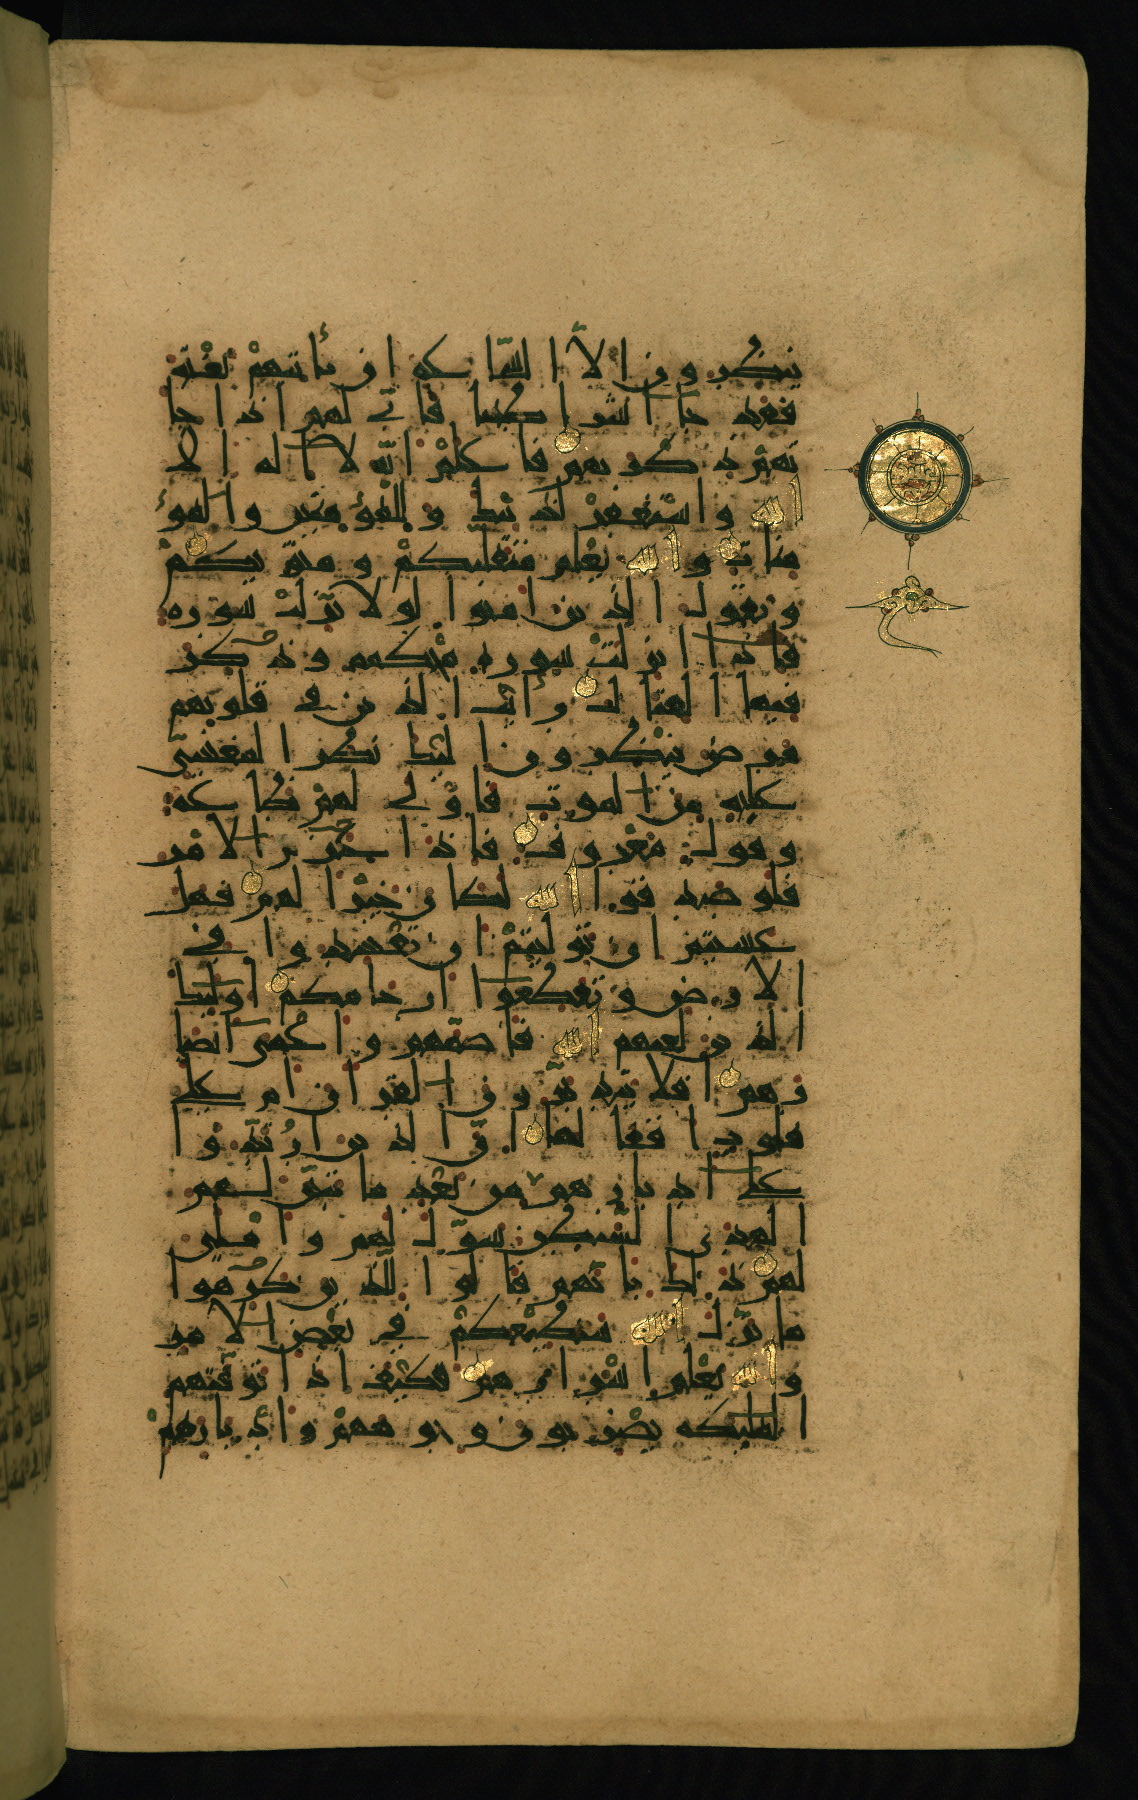 ينظرون الا الساعة ان تأتيهم بغتة
فقد جا اشراطها فانى لهم اذا جا
تهم ذكريهم فاعلم انه لا اله الا
الله واستغفر لذنبك وللمؤمنين والمؤ
منات والله يعلم متقلبكم ومثويكم
ويقول الذين امنوا لولا نزلت سورة
فاذا انزلت سورة محكمة وذكر
فيها القتال رأيت الذين في قلوبهم
مرض ينظرون اليك نظر المغشي
عليه من الموت فاولى لهم طاعة
وقول معروف فاذا عزم الامر
فلو صدقوا الله لكان خيرا لهم فهل
عسيتم ان توليتم ان تفسدوا في
الارض وتقطعوا ارحامكم اولئك
الذين لعنهم الله فاصمهم واعمى ابصا
رهم افلا يتدبرون القران ام على
قلوب اقفالها ان الذين ارتدوا
على ادبارهم من بعد ما تبين لهم
الهدى الشيطن سول لهم واملى
لهم ذلك بانهم قالوا للذين كرهوا
ما نزل الله سنطيعكم في بعض الامر
والله يعلم اسرارهم فكيف اذا توفتهم
الملئكة يضربون وجوههم وادبارهم